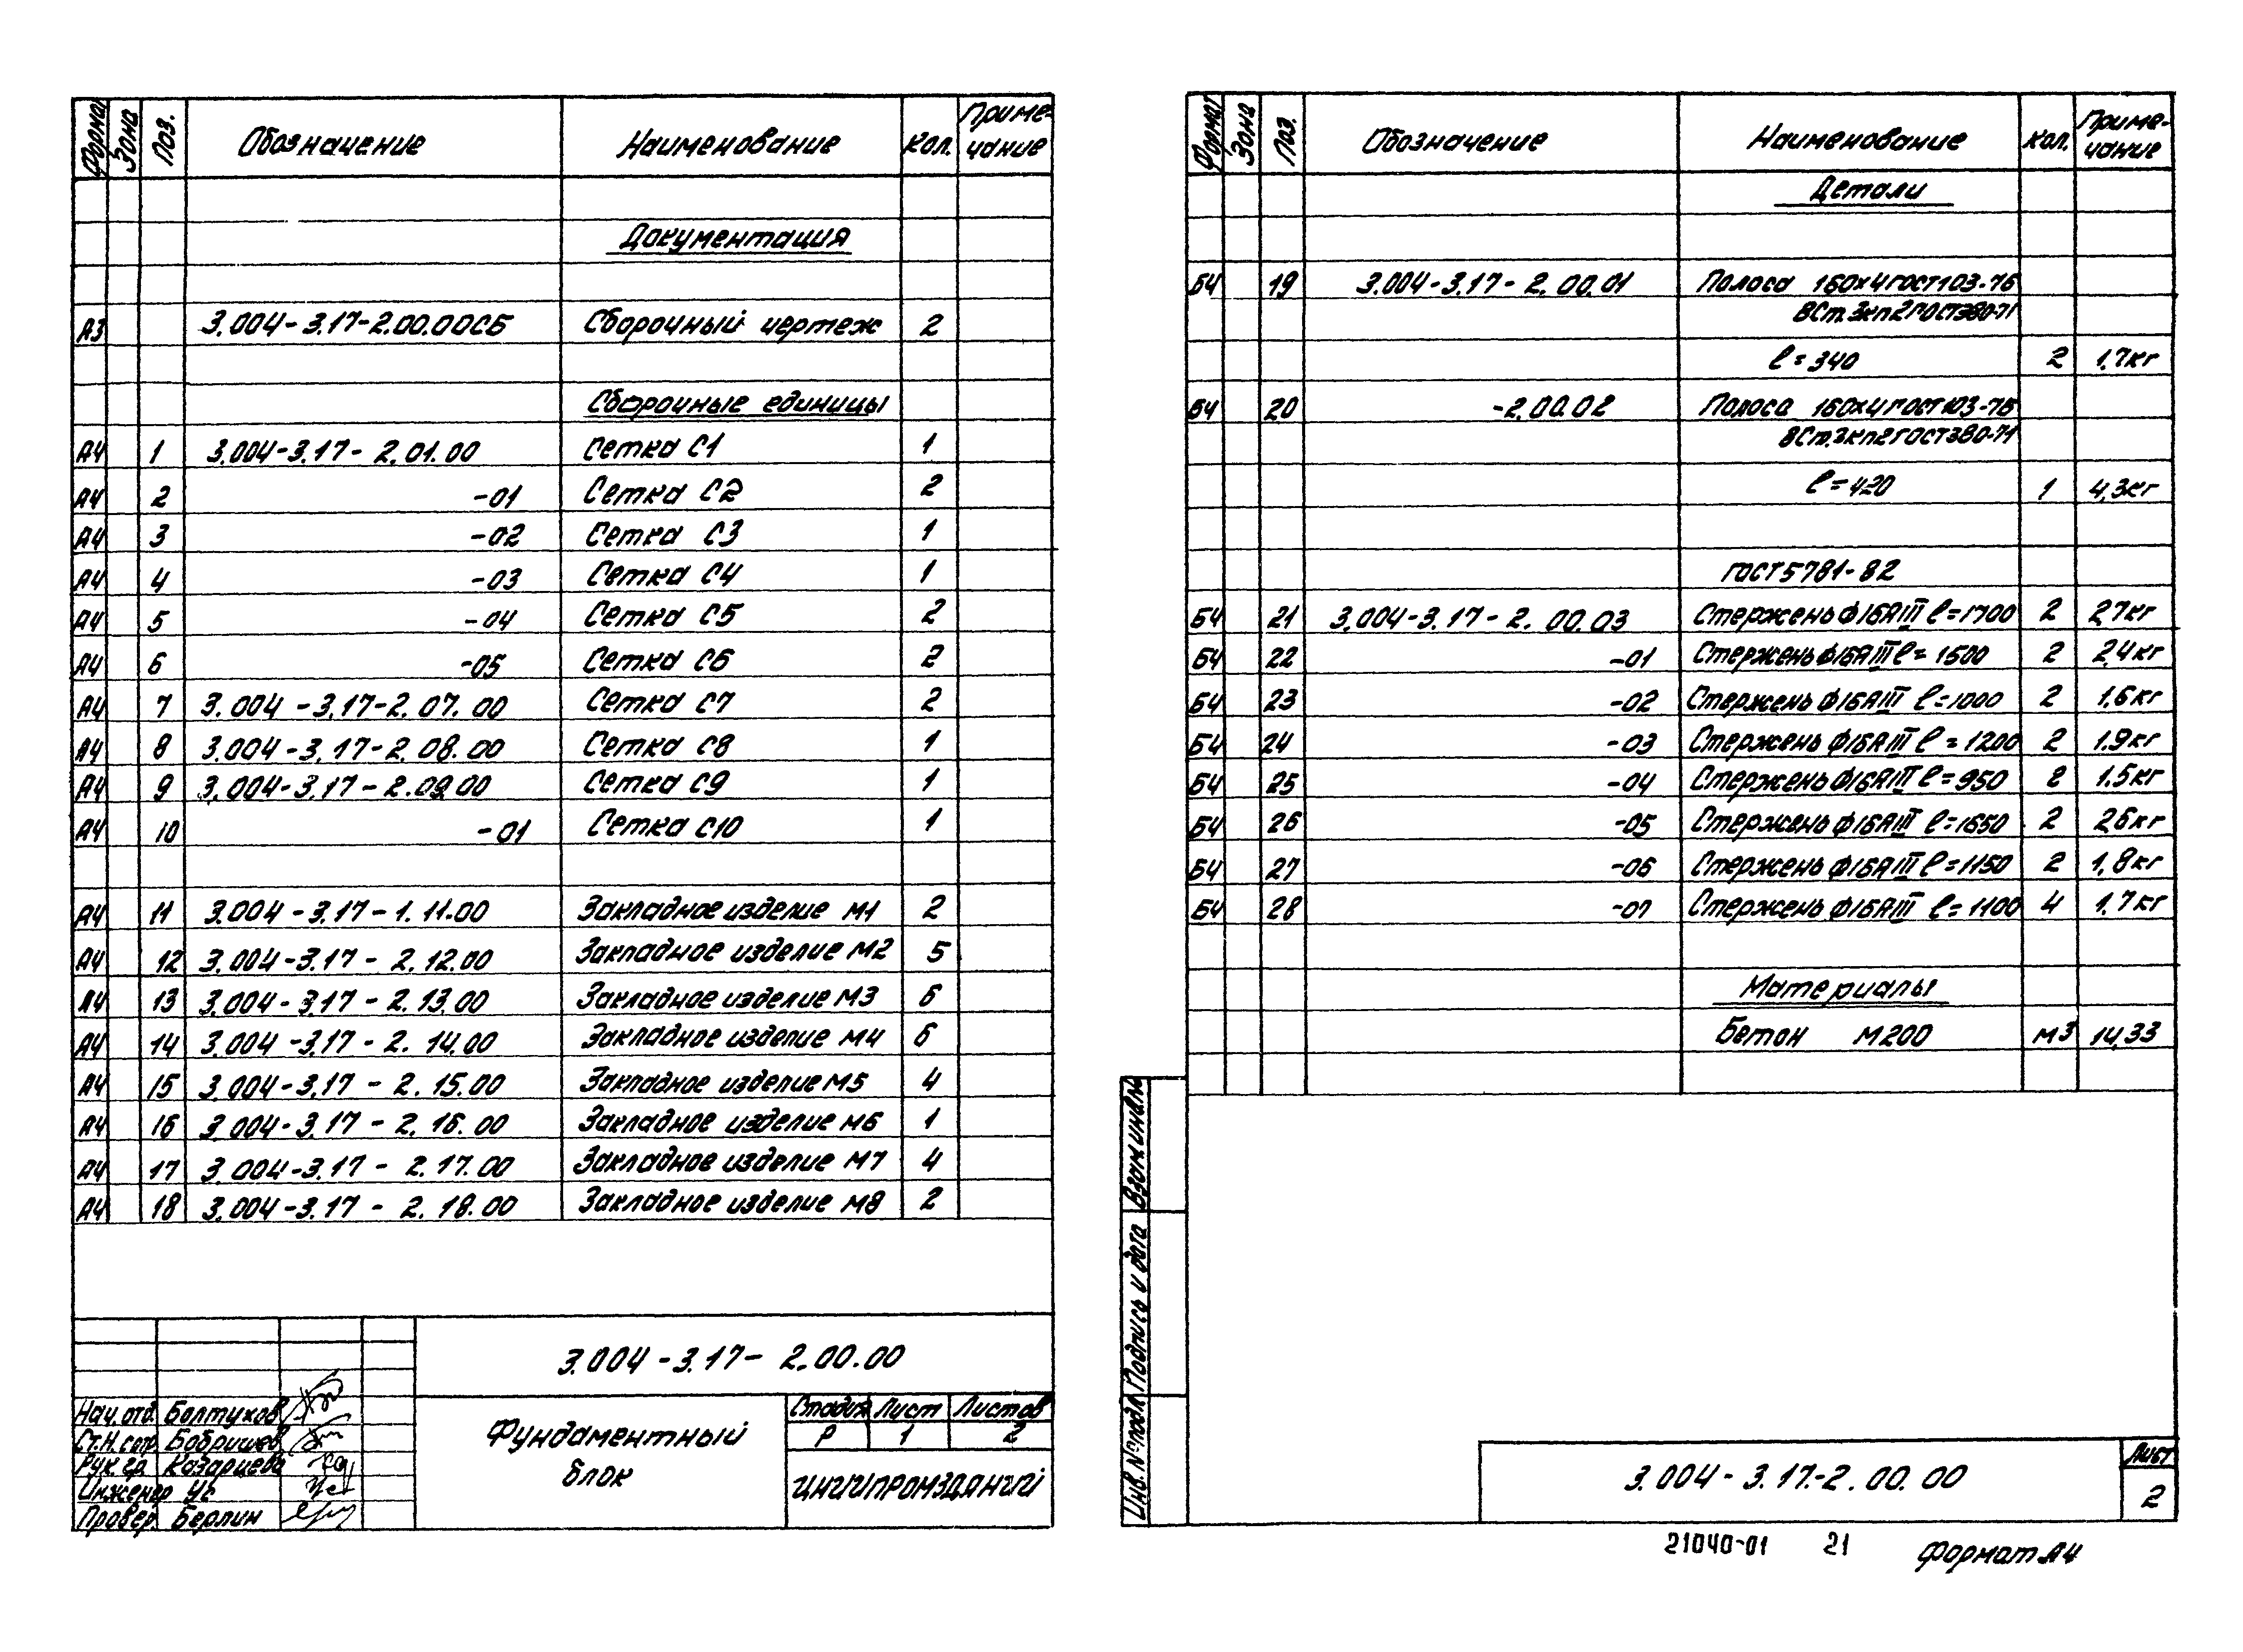 Формат Зона Поз. Обозначение Наименование Кол. Приме-чание
Документация
А3 3.004-3.17-2.00.00СБ Сборочный чертеж 2
Сборочные единицы
А4 1 3.004-3.17-2.01.00 Сетка С1 1
А4 2 -01 Сетка С2 2
А4 3 -02 Сетка С3 1
А4 4 -03 Сетка С4 1
А4 5 -04 Сетка С5 2
А4 6 -05 Сетка С6 2
А4 7 3.004-3.17-2.07.00 Сетка С7 2
А4 8 3.004-3.17-2.08.00 Сетка С8 1
А4 9 3.004-3.17-2.09.00 Сетка С9 1
А4 10 -01 Сетка С10 1
А4 11 3.004-3.17-1.11.00 Закладное изделие М1 2
А4 12 3.004-3.17-2.12.00 Закладное изделие М2 5
А4 13 3.004-3.17-2.13.00 Закладное изделие М3 6
А4 14 3.004-3.17-2.14.00 Закладное изделие М4 6
А4 15 3.004-3.17-2.15.00 Закладное изделие М5 4
А4 16 3.004-3.17-2.16.00 Закладное изделие М6 1
А4 17 3.004-3.17-2.17.00 Закладное изделие М7 4
А4 18 3.004-3.17-2.18.00 Закладное изделие М8 2
3.004-3.17-2.00.00
Нач. отд. Болтухов
Ст.н.сотр. Бобришев
Рук. гр. Казариева
Инженер Ус
Провер. Берлин
Фундаментный
блок
Стадия Лист Листов
Р 1 2
ЦНИИПРОМЗДАНИЙ
Формат Зона Поз. Обозначение Наименование Кол. Приме-чание
Детали
БЧ 19 3.004-3.17-2.00.01 Полоса 160×4 ГОСТ 103-76
ВСт.3кп2 ГОСТ 380-71
ℓ=340 2 1,7кг
БЧ 20 -2.00.02 Полоса 160×4 ГОСТ 103-76
ВСт.3кп2 ГОСТ 380-71
ℓ=420 1 4,3кг
ГОСТ 5781-82
БЧ 21 3.004-3.17-2.00.03 Стержень Ф16АIII ℓ=1700 2 27кг
БЧ 22 -01 Стержень Ф16АIII ℓ=1500 2 24кг
БЧ 23 -02 Стержень Ф16АIII ℓ=1000 2 1.6кг
БЧ 24 -03 Стержень Ф16АIII ℓ=1200 2 1.9кг
БЧ 25 -04 Стержень Ф16АIII ℓ=950 2 1.5кг
БЧ 26 -05 Стержень Ф16АIII ℓ=1650 2 26кг
БЧ 27 -06 Стержень Ф16АIII ℓ=1150 2 1,8кг
БЧ 28 -07 Стержень Ф16АIII ℓ=1100 4 1,7кг
Материалы
Бетон М200 м3 14,33
Взам.инв.№
Подпись и дата
Инв.№ подл.
3.004-3.17-2.00.00
Лист
2
21040-01 21 Формат А4